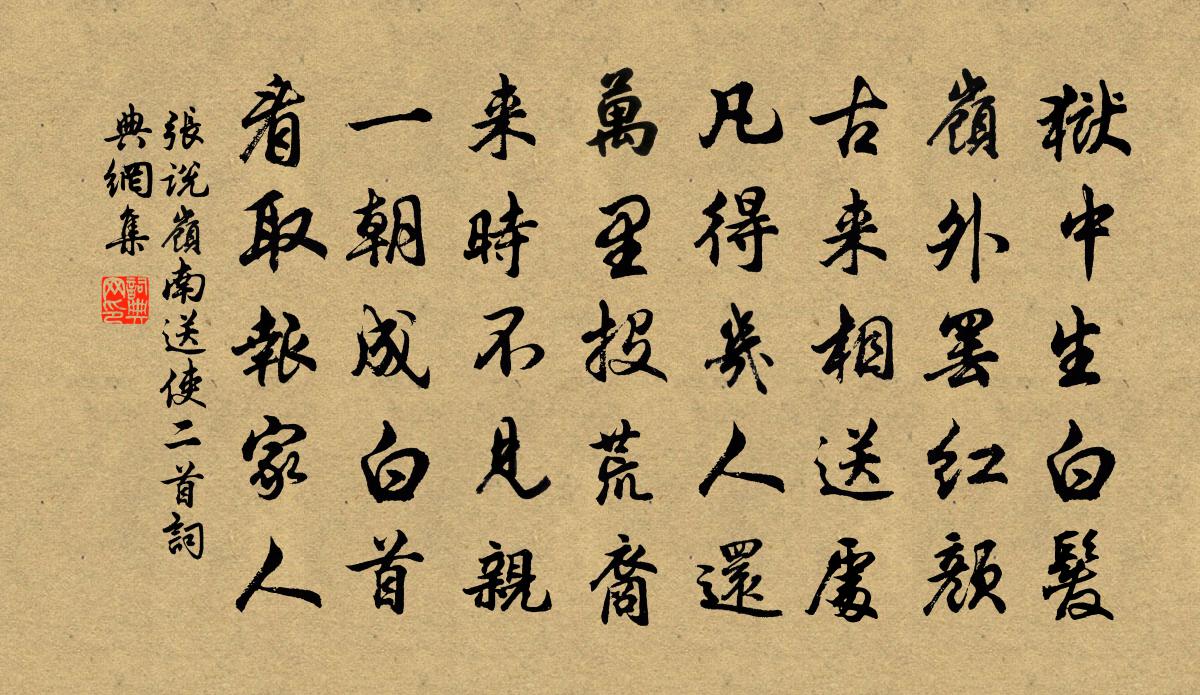 獄中生白髮
嶺外罷紅顏
古來相送處
凡得幾人還
萬里投荒裔
来時不見親
一朝成白首
看取報家人
張說嶺南送使二首詞
典網集
詞典
网印